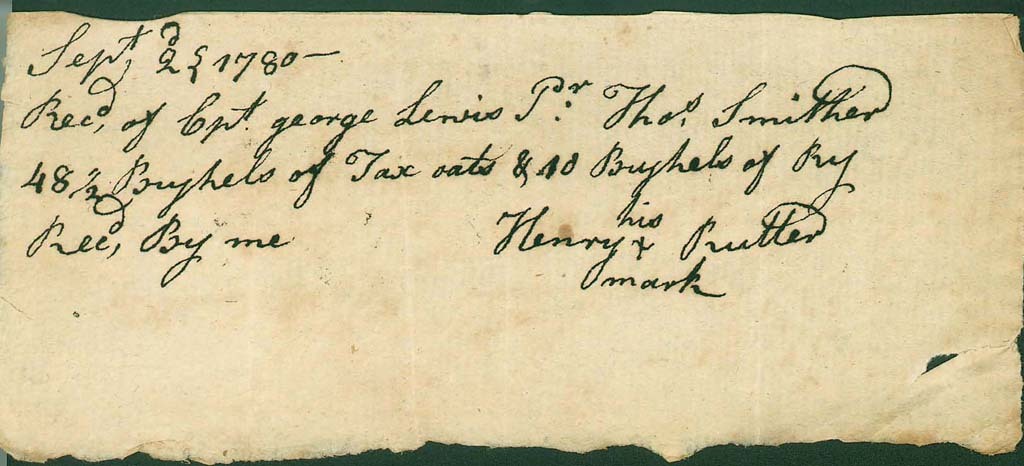 Sept. 2d 1780 —
Recd, of Cpt. george Lewis Pr. Thos. Smither
48 1/2 Bushels of Tax oats & 10 Bushels of Ry
Recd, By me Henry his x mark Rutter